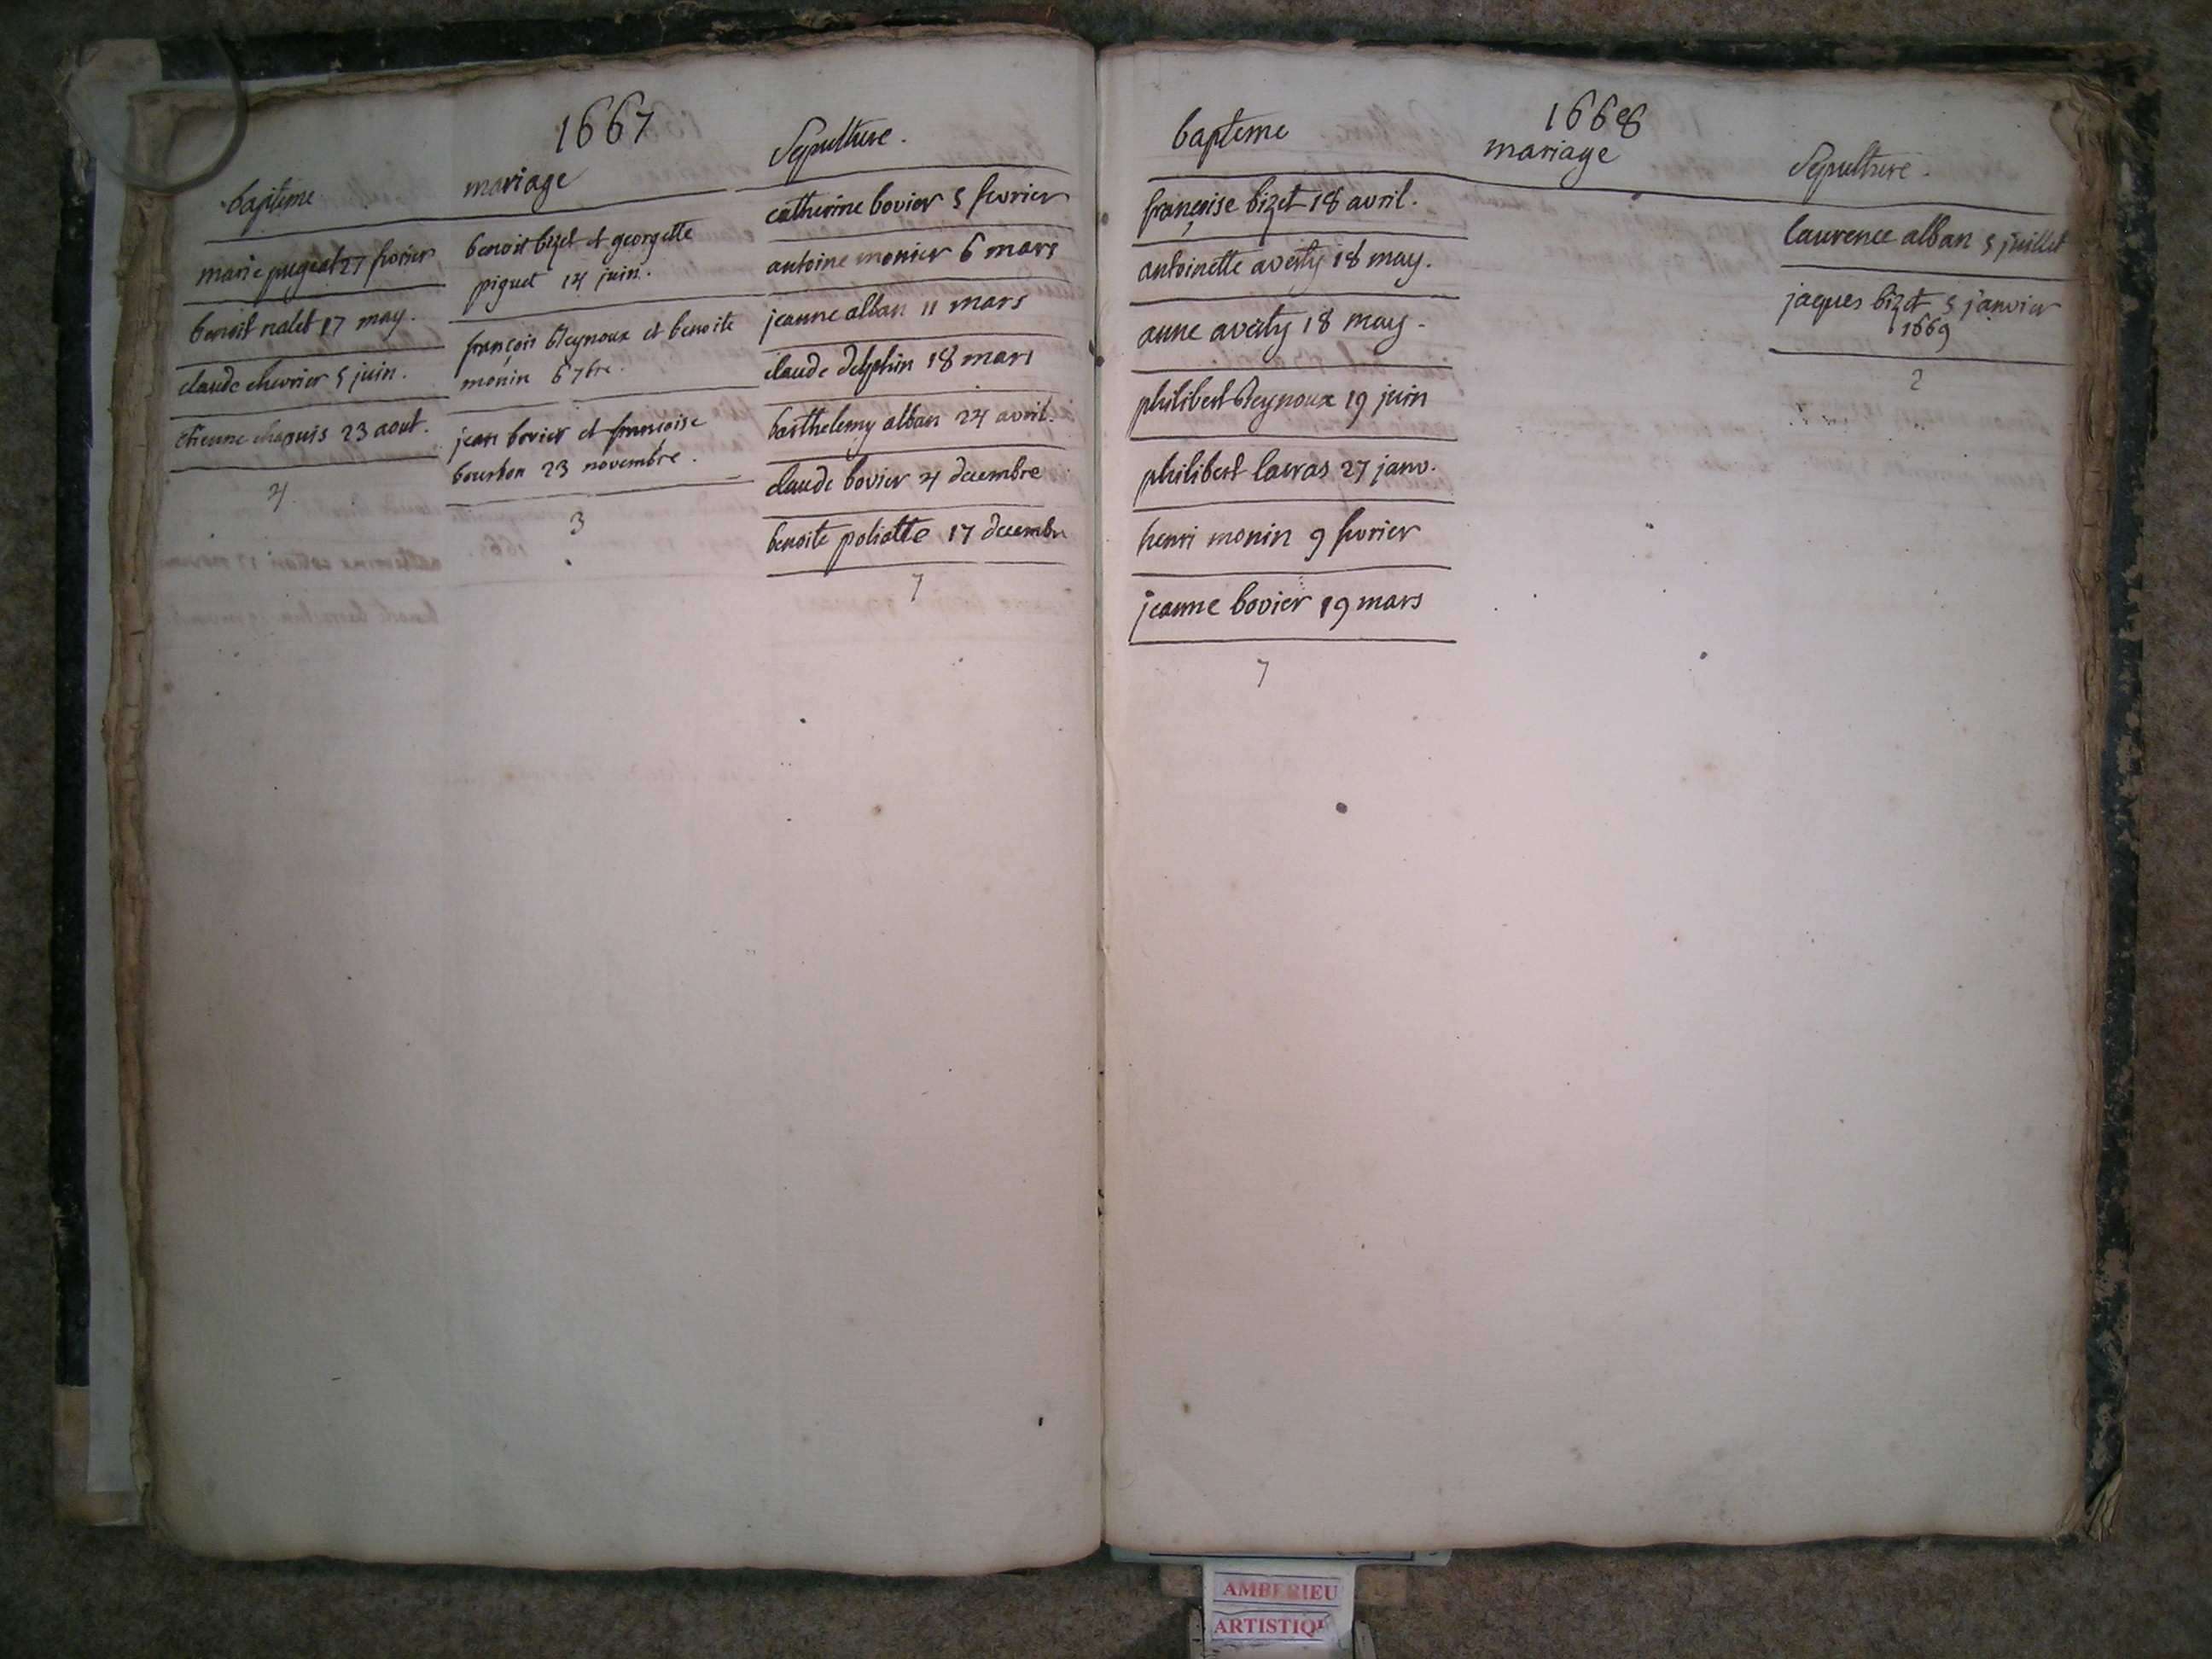 1667
bapteme
marie pugeat 27 fevrier
benoit nalet 17 may.
claude chevrier 5 juin.
etienne chapuis 23 aout.
4
mariage
benoit bizet et georgette
piguet 14 juin.
françois Reynoux et benoite
monin 6 7bre.
jean bovier et francoise
bourbon 23 novembre.
3
Sepulture.
catherine bovier 5 fevrier
antoine monier 6 mars
jeanne alban 11 mars
claude delphin 18 mars
barthelemy alban 24 avril.
claude bovier 4 decembre
benoite poliatte 17 decembre
7
1668
bapteme
françoise bizet 18 avril.
antoinette averty 18 may.
anne averty 18 may.
philibert Reynoux 19 juin
philibert lavras 27 janv.
henri monin 9 fevrier
jeanne bovier 19 mars
7
mariage
Sepulture.
laurence alban 5 juillet
jaques bizet 5 janvier
1669
2
AMBERIEU
ARTISTIQU